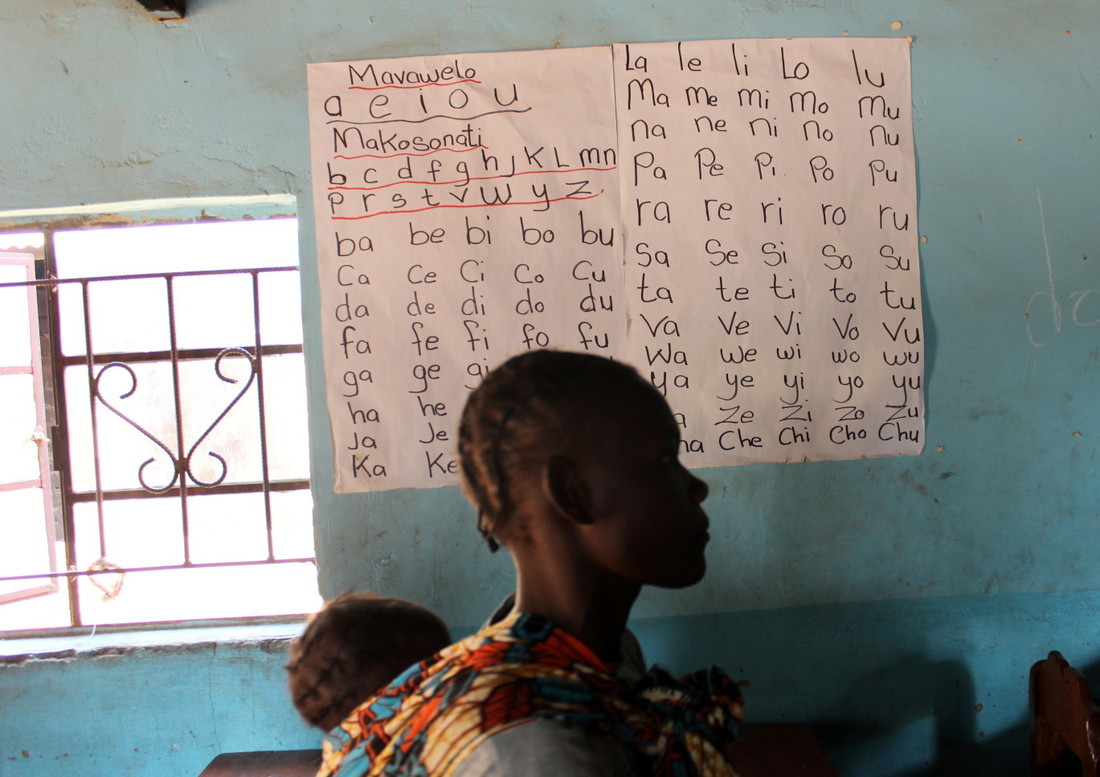 Mavawelo
a e i o u
Makosonati
b c d f g h j K L m n
p r s t v w y z
ba be bi bo bu
Ca Ce Ci Co Cu
da de di do du
fa fe fi fo fu
ga ge gi
ha he
Ja Je
Ka Ke
La le li Lo lu
Ma me mi mo mu
na ne ni no nu
Pa Pe Pi. Po Pu
ra re ri ro ru
Sa Se Si So Su
ta te ti to tu
Va Ve Vi Vo Vu
Wa we wi wo wu
ya ye yi yo yu
Ze Zi Zo Zu
Che Chi Cho Chu